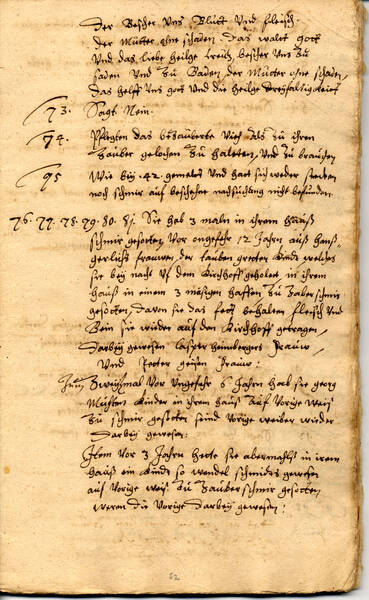 der Bescher Uns Blutt Und fleisch.
der Mutter ohne schaden, das walt gott
Und das liebe heilge Creutz, bescher Uns zu
saden Und zu baden der Mutter ohne schaden
das helff Uns gott Und die heilge dreyfaltigkeit
73. Sagt Nein.
94. Pflegten das bezauberte Vieh als zu ihren
Zauber gelochen zu halten, Und zu brauchen
95 Wie bey .42. gemelt Und hatt sich weder stecken
noch schmir auf beschehne nachsuchung nicht befunden
76. 77. 78. 79. 80. 81. Sie hab 3 maln in ihrem hauß
schmir gesotten, Vor ongefehr 12 Jahrn auß hanß
frauwen, der tauben greten Kindt welches
sie bey nacht Uf dem Kirchhoff geholett in ihrem
hauß in einem 3 mesigen haffen zu Zaberschmir
gesotten, davon sie das fett behalten fleisch Und
Bein sie wieder auf den Kirchhoff getragen,
Darbey gewesen Casper heimbergers frauw
Und Peeter frauw:
Zweyßmal Vor Ungefehr 6 Jahrn hab sie georg
Kinder in ihrem hauß auf Vorige weiß
zu schmir gesotten seind Vorige weiber wieder
darbey gewesen:
Item Vor 3 Jahrn hette sie abermahlst in irem
hauß ein Kindt so wendel schmidts gewesen
auf Vorige weiß zu Zauberschmir gesotten
weren die Vorige darbey gewesen:
62